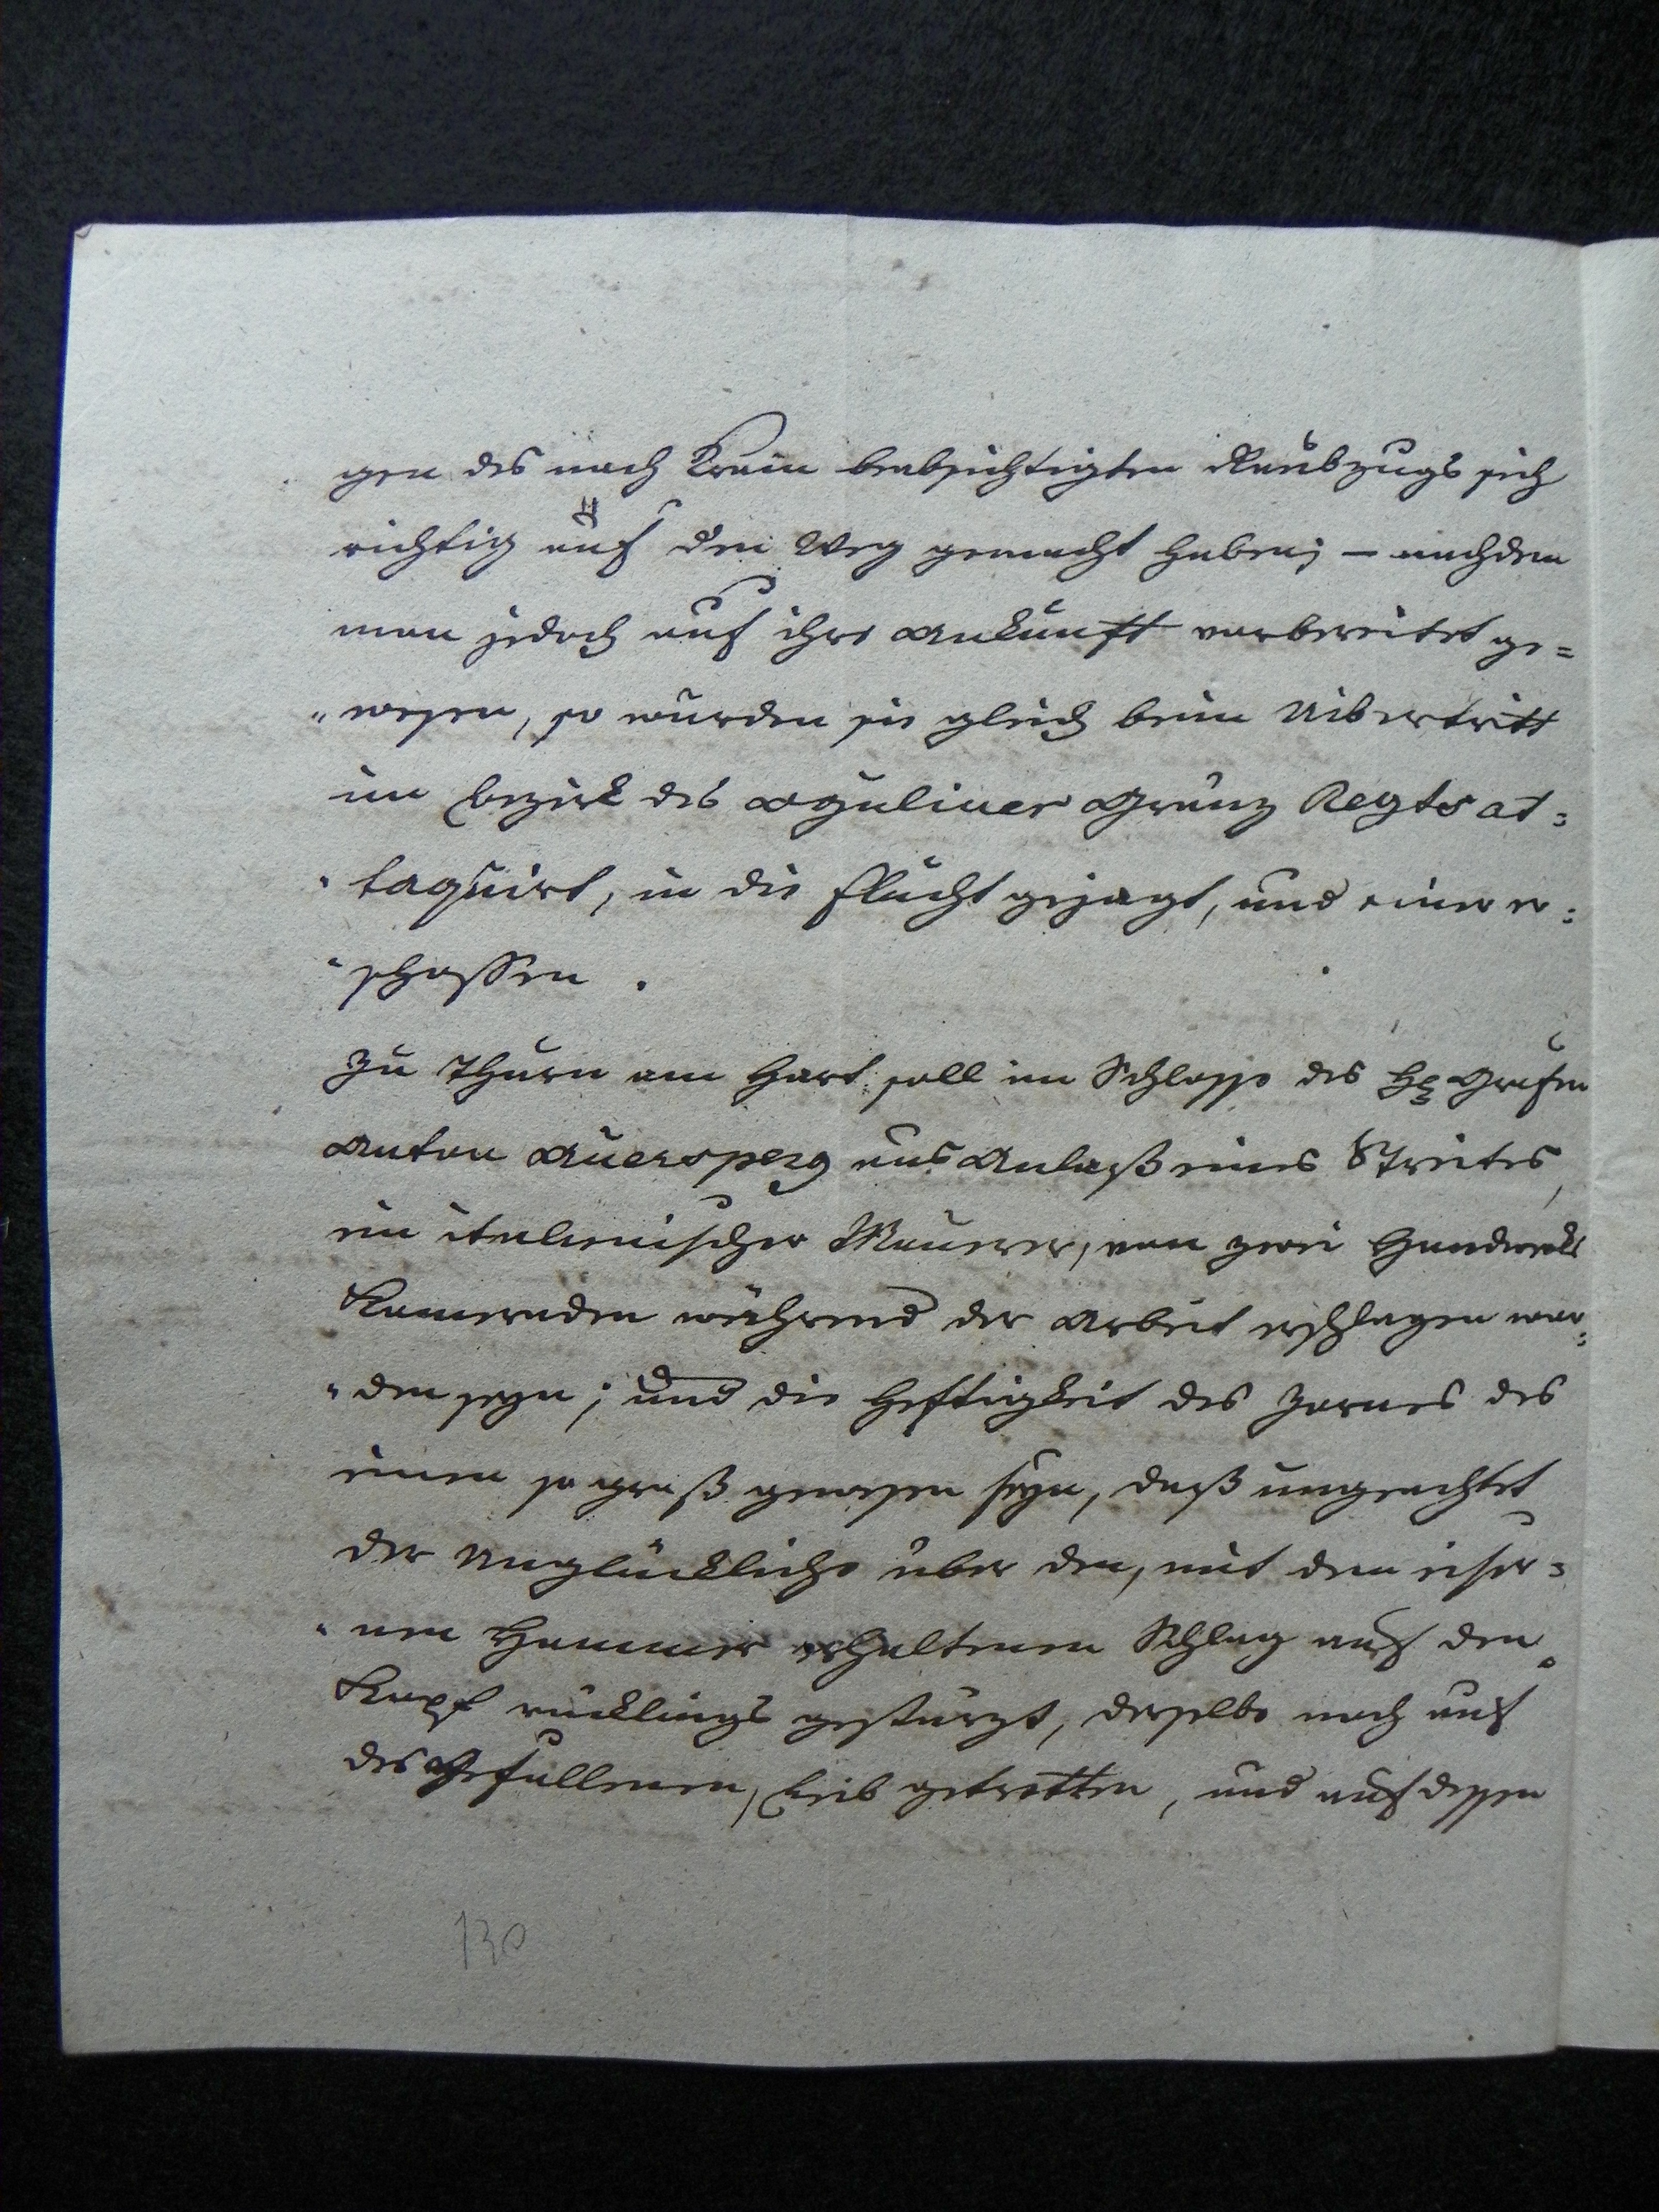 gen des nach Krain beabsichtigten Raubzugs sich
richtig auf den Weg gemacht haben; – nachdem
man jedoch auf ihre Ankunft vorbereitet ge=
"wesen, so wurden sie gleich beim Uibertritt
im Bezirk des Oguliner Gränz Regts at=
"taquirt, in die Flucht gejagt, und einer er=
"schossen.
Zu Thurn am Hart soll im Schlosse des H: Grafen
Anton Auersperg aus Anlaß eines Streites,
ein italienischer Maurer, von zwei Handwerks
Kameraden während der Arbeit erschlagen wor=
"den seyn; und die Heftigkeit des Zornes des
einen so groß gewesen seyn, daß ungeachtet
der Unglückliche über den, mit dem eiser=
"nen Hammer erhaltenen Schlag auf den
Kopf rücklings gestürzt, derselbe noch auf
des Gefallenen, Leib getretten, und auf dessen
130